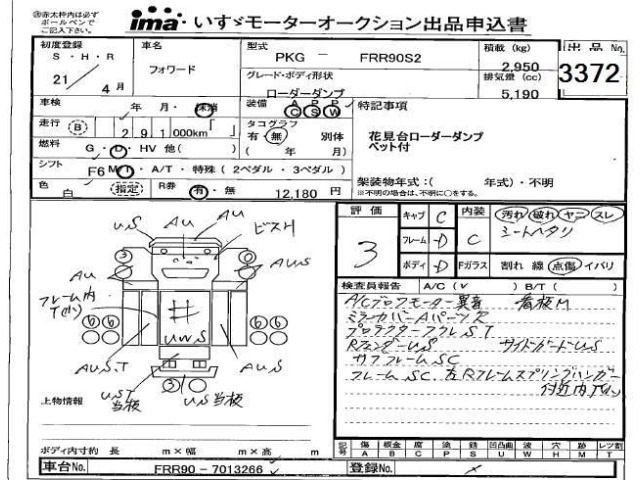 ※赤太枠内は必ず
ボールペンで
ご記入下さい。
ima いすゞモーターオークション出品申込書
初度登録
S・H・R
21／4月
車名
フォワード
型式
PKG － FRR90S2
グレード・ボディ形状
ローダーダンプ
積載 (kg)
2,950
排気量 (cc)
5,190
出品No.
3372
車検
年 月・抹消
走行 B
2 9 1 000km
燃料
G・D・HV 他( )
シフト
F6 M/T・A/T・特殊 ( 2ペダル・3ペダル )
色
白 (指定)
R券
有・無 12,180 円
装備
A/C P/S P/W
タコグラフ
有・無 別体
( 年 月 )
特記事項
花見台ローダーダンプ
ベット付
架装物年式：( 年式)・不明
※不明の場合は、不明に○をする。
U.S AU AU ビスH
AU AU.S
フレーム内
3 6 6 6 6
UWS
AU.S.T AU.S
UST 当板 3 U.S当板
上物情報
ボディ内寸約 長 m×幅 m×高 m
車台No. FRR90－7013266
評価
3
キャブ C
フレーム D
ボディ D
内装 C
汚れ 破れ ヤニ スレ
シートヘタリ
Fガラス 割れ 線 点傷 イバリ
検査員報告 A/C (✓ ) B/T ( )
A/Cブロアモーター異音 看板M
ミラーカバー Aパーツ ス
プロテクターフクレST
Rフェンダー U.S サイドガードU.S
サブフレームSC
フレームSC. 左Rフレームスプリングハンガー
付近内
記号 傷 A 板金 B 腐 C 塗 P 錆 S 凹凸曲 U 波 W 穴 H 跡 M レンズ割 T
登録No.